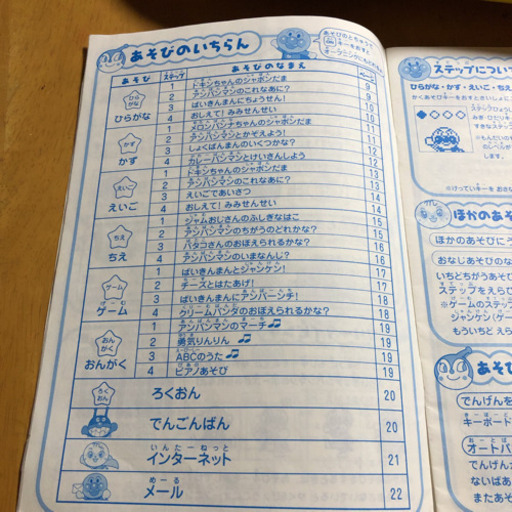 あそびのいちらん
あそびのとちゅうで
キーをおすと
オープニングにもどれるよ
あそび ステップ あそびのなまえ ページ
ひらがな
1 ドキンちゃんのシャボンだま 9
2 アンパンマンのこれなあに? 9
3 ばいきんまんにちょうせん! 10
4 おしえて!みみせんせい 10
かず
1 メロンパンナちゃんのシャボンだま 10
2 アンパンマンとかぞえよう! 11
3 しょくぱんまんのいくつかな? 11
4 カレーパンマンとけいさんしよう 12
えいご
1 ドキンちゃんのシャボンだま 12
2 アンパンマンのこれなあに? 13
3 えいごであいさつ 13
4 おしえて!みみせんせい 14
ちえ
1 ジャムおじさんのふしぎなはこ 14
2 アンパンマンのちがうのどれかな? 15
3 バタコさんのおぼえられるかな? 15
4 アンパンマンのいまなんじ? 16
ゲーム
1 ばいきんまんとジャンケン! 16
2 チーズとはたあげ! 17
3 ばいきんまんにアンパーンチ! 17
4 クリームパンダのおぼえられるかな? 18
おんがく
1 アンパンマンのマーチ 19
2 勇気りんりん 19
3 ABCのうた 19
4 ピアノあそび 19
ろくおん 20
でんごんばん 20
いんたーねっと
インターネット 21
めーる
メール 22
ステップについて
ひらがな・かず・えいご・ちえ
すきなステップ
します。
ほかのあそ
ほかのあそびにう
おなじあそびの
いちどちがうあそび
ステップをえら
※ゲームのステップ
ジャンケン(ゲー
もういちど えら
あそ
でんげんを
キーボード
オートパ
でんげんが
ないばあ
またあそ